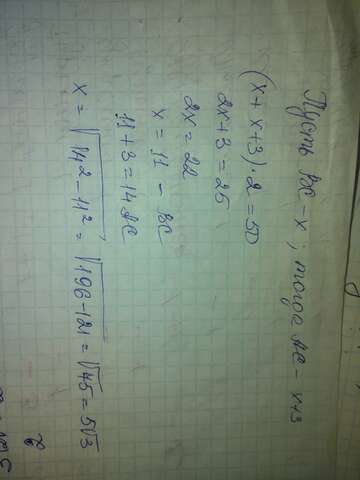 Пусть BC - x ; тогда AC - x+3
(x + x+3)·2 = 50
2x+3 = 25
2x = 22
x = 11 - BC
11+3 = 14 AC
x = √14² - 11² = √196 - 121 = √45 = 5√3
2